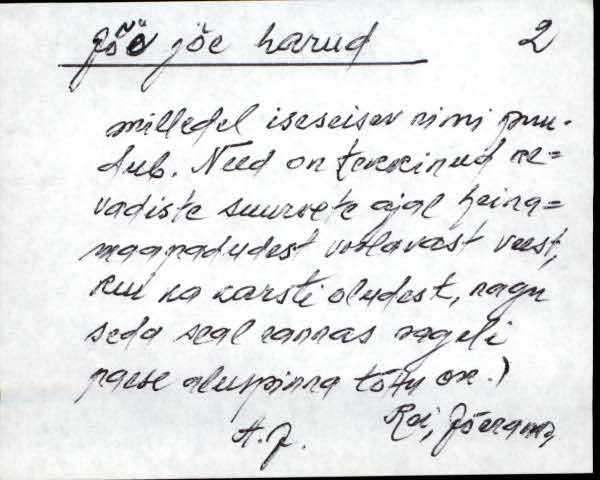 jõe harud 2
milledel iseseisev nimi puu-
dub. Need on tekkinud ke=
vadiste suurvete ajal heina=
maapadudest voolavast veest,
kui ka karsti oludest, nagu
seda seal rannas mageli
paese aluspinna tõttu on.)
A.J. Rai, Jõeranna